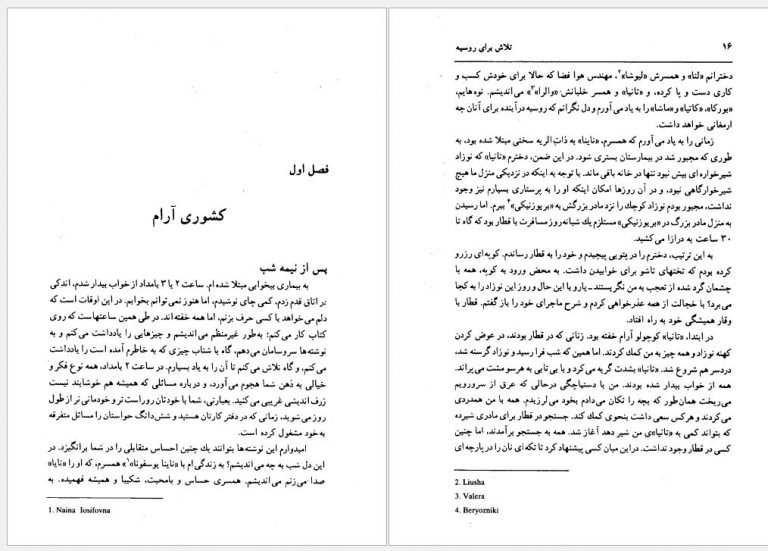 فصل اول
کشوری آرام
پس از نیمه شب
به بیماری بیخوابی مبتلا شده ام. ساعت ۲ یا ۳ بامداد از خواب بیدار شدم، اندکی
در اتاق قدم زدم، کمی چای نوشیدم، اما هنوز نمی توانم بخوابم. در این اوقات است که
دلم می‌خواهد با کسی حرف بزنم، اما همه خفته‌اند. در طی همین ساعتهاست که روی
کتاب کار می‌کنم؛ به‌طور غیرمنظم می‌اندیشم و چیزهایی را یادداشت می‌کنم و به
نوشته‌ها سروسامان می‌دهم، گاه با شتاب چیزی که به خاطرم آمده است را یادداشت
می‌کنم، و گاه تلاش می‌کنم تا آن را به یاد بسپارم. در ساعت ۲ بامداد، همه نوع فکر و
خیالی به ذهن شما هجوم می‌آورد، و درباره مسائلی که همیشه هم خوشایند نیست
ژرف اندیشی غریبی می کنید. بعبارتی، شما با خودتان روراست تر و خودمانی تر از طول
روز می‌شوید، زمانی که در دفتر کارتان هستید و شش‌دانگ حواستان را مسائل متفرقه
به‌خود مشغول کرده است.
امیدوارم این نوشته‌ها بتوانند یك چنین احساس متقابلی را در شما برانگیزد. در
این دل شب به چه می‌اندیشم؟ به زندگی ام با «ناینا یوسفونا»۱ همسرم، که او را «نایا»
صدا می‌زنم می‌اندیشم. همسری حساس و بامحبت، شکیبا و همیشه فهمیده. به
1. Naina Iosifovna
۱۶ تلاش برای روسیه
دخترانم «لنا» و همسرش «لیوشا»۲، مهندس هوا فضا که حالا برای خودش کسب و
کاری دست و پا کرده، و «تانیا» و همسر خلبانش «والرا»۳ می‌اندیشم. نوه‌هایم،
«بورکا»، «کاتیا» و «ماشا» را به یاد می آورم و دل نگرانم که روسیه در آینده برای آنان چه
ارمغانی خواهد داشت.
زمانی را به یاد می آورم که همسرم، «ناینا» به ذات الریه سختی مبتلا شده بود، به
طوری که مجبور شد در بیمارستان بستری شود. در این ضمن، دخترم «تانیا» که نوزاد
شیرخواره ای بیش نبود تنها در خانه باقی ماند. با توجه به اینکه در نزدیکی منزل ما هیچ
شیرخوارگاهی نبود، و در آن روزها امکان اینکه او را به پرستاری بسپارم نیز وجود
نداشت، مجبور بودم نوزاد کوچك را نزد مادر بزرگش به «بریوزنیکی»۴ ببرم. اما رسیدن
به منزل مادر بزرگ در «بریوزنیکی» مستلزم یك شبانه‌روز مسافرت با قطار بود که گاه تا
۳۰ ساعت به درازا می‌کشید.
به این ترتیب، دخترم را در پتویی پیچیدم و خود را به قطار رساندم. کوپه‌ای رزرو
کرده بودم که تختهای تاشو برای خوابیدن داشت. به محض ورود به کوپه، همه با
چشمان گرد شده از تعجب به من نگریستند ــ یارو با این حال و روز این نوزاد را به کجا
می‌برد؟ با خجالت از همه عذرخواهی کردم و شرح ماجرای خود را باز گفتم. قطار با
وقار همیشگی خود به راه افتاد.
در ابتدا، «تانیا» کوچولو آرام خفته بود. زنانی که در قطار بودند، در عوض کردن
کهنه نوزاد و همه چیز به من کمك کردند. اما همین که شب فرا رسید و نوزاد گرسنه شد،
دردسر هم شروع شد. «تانیا» بشدت گریه می‌کرد و با بی تابی به هرسو مشت می‌پراند.
همه از خواب بیدار شده بودند. من با دستپاچگی درحالی که عرق از سرورویم
می‌ریخت همان‌طور که بچه را تکان می‌دادم بخود می‌لرزیدم. همه با من همدردی
می‌کردند و هرکس سعی داشت بنحوی کمك کند. جستجو در قطار برای مادری شیرده
که بتواند کمی به «تانیا»ی من شیر دهد آغاز شد. همه به جستجو برآمدند، اما چنین
کسی در قطار وجود نداشت. در این میان کسی پیشنهاد کرد تا تکه‌ای نان را در پارچه ای
2. Liusha
3. Valera
4. Beryozniki